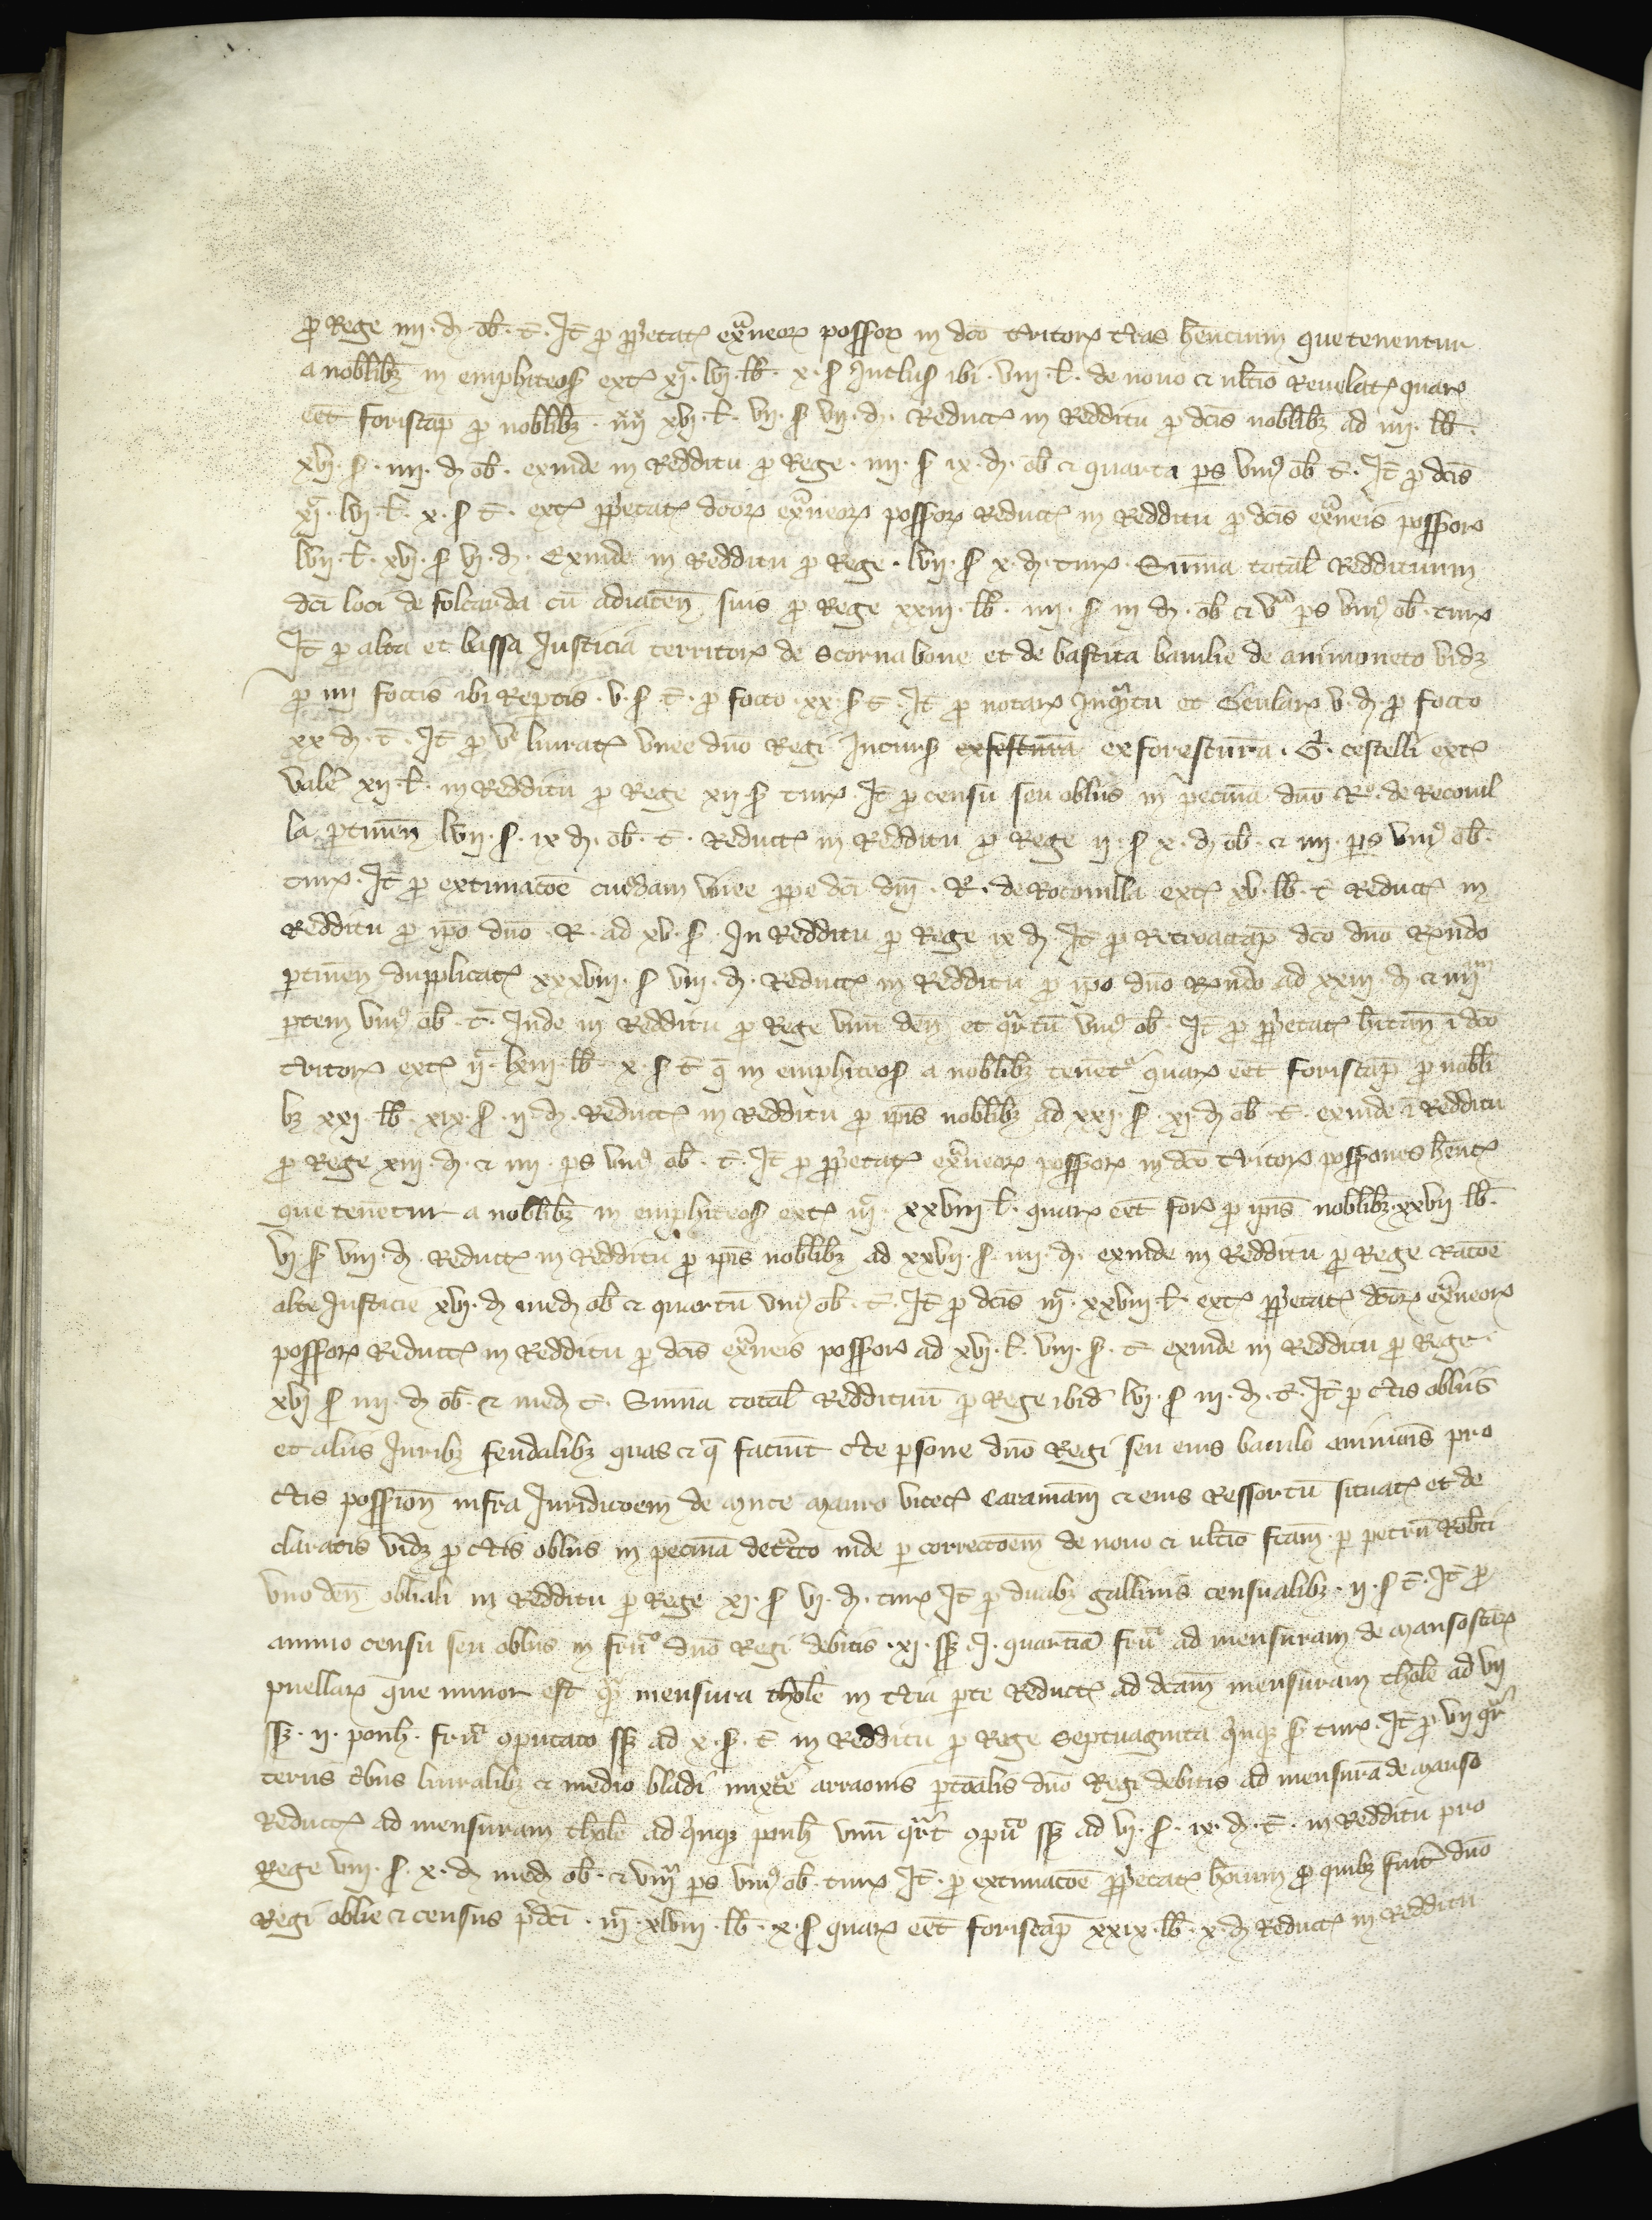 p Rege iiii · d · ob · t · It p ppetat extneor possor in dco tritor ctas hencium que tenentur
a noblibz in emphiteos ext xi lvi · lb · x · s Inclus ibi · viii · l · de novo et ultio Revelat quar
eet foriscap p noblibz · iiii xvi · l · vii · s vii · d · Reduct in Redditu p dcis noblibz ad iiii · lb ·
xvi · s · iiii · d ob · exinde in Redditu p Rege · iiii · s ix · d · ob et quarta ps uni ob t · It p dcis
xi · lvi · l · x · s t · ext ppetat dcor extneor possor Reduct in Redditu p dcis extneis possor
lvii · l · xvi · s vi · d · Exinde in Redditu p Rege · lvii · s x · d · tur · Suma total Reddituum
dci loci de folcarda cu adiacen suis p Rege xxiii · lb · iiii · s iii d · ob et va ps uni ob · tur
It p alta et bassa Justicia territor de Scornabove et de bastita bailie de avinioneto vidz
p iiii foccis ibi Reptis · v · s · t · p focco · xx · s t · It p notar Inqntu et Geular v · d · p focco
xx d · t · It p va liurat vinee dno Regi Incurs exfestura exforestura · G · cestelli ext
vale xii · l · in Redditu p Rege xii · s tur · It p censu seu obliis in pecunia dno Ro · de Recovil
la ptinen lvii · s · ix d · ob · t · Reduct in Redditu p Rege ii · s x · d ob · et iiii · ps uni ob ·
tur · It p extimacoe cuiusdam vinee ppe dci dni · R · de Rocovilla ext xv · lb · t Reduct in
Redditu p ipo dno · R · ad xv · s · In Redditu p Rege ix d · It p Retroaccap dco dno Rondo
ptinen dupplicat xxxviii · s viii · d · Reduct in Redditu p ipo dno Rondo ad xxiii · d · et iiiiam
ptem uni ob · t · Inde in Redditu p Rege unu den et qrtu uni ob · It p ppetat hitan i dco
tritor ext ii · lxiii · lb · x · s t q in emphiteos a noblibz tenet quar eet foriscap p nobli
bz xxi · lb · xix · s · ii d · Reduct in Redditu p ipis noblibz ad xxi · s · xi d ob · t · exinde i Redditu
p Rege xiii · d · et iiii · ps uni ob · t · It p ppetat extneor possor in dco tritor possiones hent
que tenetur a noblibz in emphiteos ext iii · xxviii l · quar eet for p ipis noblibz xxvii lb ·
vi · s viii · d · Reduct in Redditu p ipis noblibz ad xxvii · s · iiii · d · exinde in Redditu p Rege racoe
alte Justicie xvi · d med ob et quartu uni ob · t · It p dcis iii · xxviii l · ext ppetat dcor extneor
possor Reduct in Redditu p dcis extneis possor ad xvi · l · viii · s · t exinde in Redditu p Rege ·
xvi s iiii · d ob · et med t · Suma total Reddituu p Rege ibid lvi · s iii · d · t · It p ctis obliis
et aliis Juribz feudalibz quas et q faciut cte psone dno Regi seu eius baiulo avinionis pro
ctis possion infra Juridicoem de Monte Mauro vicect Caramam et eius Ressortu situat et de
claratis vidz p ctis obliis in pecunia detcto inde p correctoem de novo et ultio fcam p petru Robti
uno den obliali in Redditu p Rege xi · s vi · d · tur It p duabz gallinis censualibz · ii · s t · It p
annuo censu seu obliis in fruo dno Regi debitis · xi · sz · i · quartia fruo ad mensuram de Mansostar
puellar que minor est q mensura thole in ctia pte Reduct ad dcam mensuram thole ad vii
sz · ii · ponh · fru oputato sz ad x · s · t in Redditu p Rege septuaginta qnqz s tur · It p vii qr
teriis cbus liuralibz et medio bladi mixte arraonis ptoalis dno Regi debitis ad mensura de Manso
Reduct ad mensuram thole ad qnqz ponh unu qrt oputo sz ad vi · s · ix · d · t · in Redditu pro
Rege viii · s · x · d med ob · et viii ps uni ob · tur It · p extimacoe ppetat hoium p quibz fiut dno
Regi oblie et census pdci · iii · xlviii · lb · x · s quar eet foriscap xxix · lb · x d Reduct in Redditu